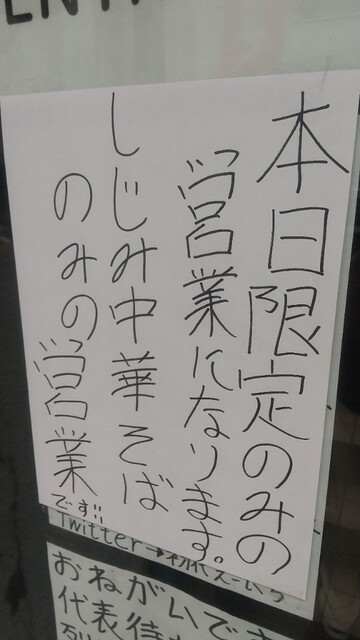 本日限定のみの
営業になります。
しじみ中華そば
のみの営業
です!!
Twitter→
おねがいで
代表待